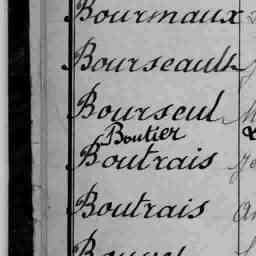 Bourmaux
Bourseault
Bourseul
Boutier
Boutrais
Boutrais